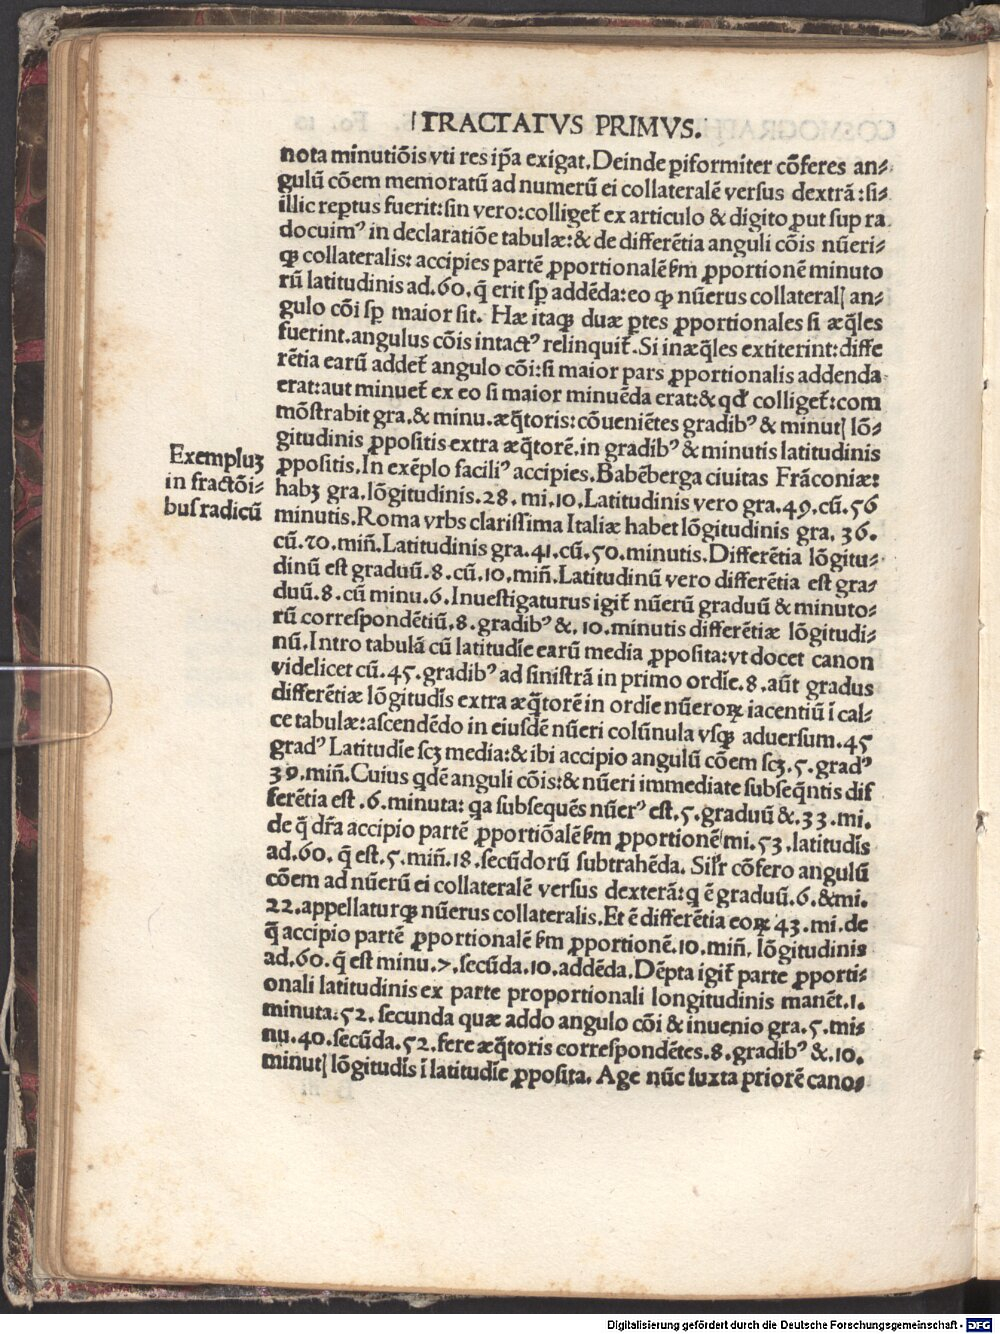 TRACTATVS PRIMVS.
nota minutiõis vti res ip̃a exigat. Deinde ꝑiformiter cõferes an⸗
gulũ cõem memoratũ ad numerũ ei collateralẽ versus dextrã: si⸗
illic reꝑtus fuerit: sin vero: colliget̃ ex articulo & digito ꝓut sup ra
docuimꝰ in declaratiõe tabulæ: & de differẽtia anguli cõis nũeri⸗
qꝫ collateralis: accipies partẽ ꝓportionalẽ ẞm ꝓportionẽ minuto
rũ latitudinis ad. 60. q̃ erit sꝑ addẽda: eo ꝙ nũerus collateralꝭ an⸗
gulo cõi sꝑ maior sit. Hæ itaqꝫ duæ ꝑtes ꝓportionales si æq̃les
fuerint. angulus cõis intactꝰ relinquit̃. Si inæq̃les extiterint: diffe
rẽtia earũ addet̃ angulo cõi: si maior pars ꝓportionalis addenda
erat: aut minuet̃ ex eo si maior minuẽda erat: & qđ colliget̃: com
mõstrabit gra. & minu. æq̃toris: cõueniẽtes gradibꝰ & minutꝭ lõ⸗
gitudinis ꝓpositis extra æq̃torẽ. in gradibꝰ & minutis latitudinis
ꝓpositis. In exẽplo faciliꝰ accipies. Babẽberga ciuitas Frãconiæ:
Exempluꝫ
in fractõi⸗
bus radicũ
habꝫ gra. lõgitudinis. 28. mi. 10. Latitudinis vero gra. 49. cũ. 56
minutis. Roma vrbs clarissima Italiæ habet lõgitudinis gra. 36.
cũ. 20. miñ. Latitudinis gra. 41. cũ. 50. minutis. Differẽtia lõgitu⸗
dinũ est graduũ. 8. cũ. 10. miñ. Latitudinũ vero differẽtia est gra⸗
duũ. 8. cũ minu. 6. Inuestigaturus igit̃ nũerũ graduũ & minuto⸗
rũ correspondẽtiũ. 8. gradibꝰ &. 10. minutis differẽtiæ lõgitudi⸗
nũ. Intro tabulã cũ latitudĩe earũ media ꝓposita: vt docet canon
videlicet cũ. 45. gradibꝰ ad sinistrã in primo ordĩe. 8. aũt gradus
differẽtiæ lõgitudĩs extra æq̃torẽ in ordĩe nũeroꝝ iacentiũ ĩ cal⸗
ce tabulæ: ascendẽdo in eiusdẽ nũeri colũnula vsqꝫ aduersum. 45
gradꝰ Latitudĩe scꝫ media: & ibi accipio angulũ cõem scꝫ. 5. gradꝰ
39. miñ. Cuius qdẽ anguli cõis: & nũeri immediate subseq̃ntis dif
ferẽtia est. 6. minuta: qa subsequẽs nũerꝰ est. 5. graduũ &. 33. mi.
de q̃ dr̃a accipio partẽ ꝓportiõalẽ ẞm ꝓportionẽ mi. 53. latitudĩs
ad. 60. q̃ est. 5. miñ. 18. secũdorũ subtrahẽda. Silr̃ cõfero angulũ
cõem ad nũerũ ei collateralẽ versus dexterã: q ẽ graduũ. 6. & mi.
22. appellaturqꝫ nũerus collateralis. Et ẽ differẽtia eoꝝ 43. mi. de
q̃ accipio partẽ ꝓportionalẽ ẞm ꝓportionẽ. 10. miñ. lõgitudinis
ad. 60. q̃ est minu. 7. secũda. 10. addẽda. Dẽpta igit̃ parte ꝓporti⸗
onali latitudinis ex parte proportionali longitudinis manẽt. 1.
minuta. 52. secunda quæ addo angulo cõi & inuenio gra. 5. mi⸗
nu. 40. secũda. 52. fere æq̃toris correspondẽtes. 8. gradibꝰ &. 10.
minutꝭ lõgitudĩs ĩ latitudĩe ꝓposita. Age nũc iuxta priorẽ cano⸗
Digitalisierung gefördert durch die Deutsche Forschungsgemeinschaft - DFG